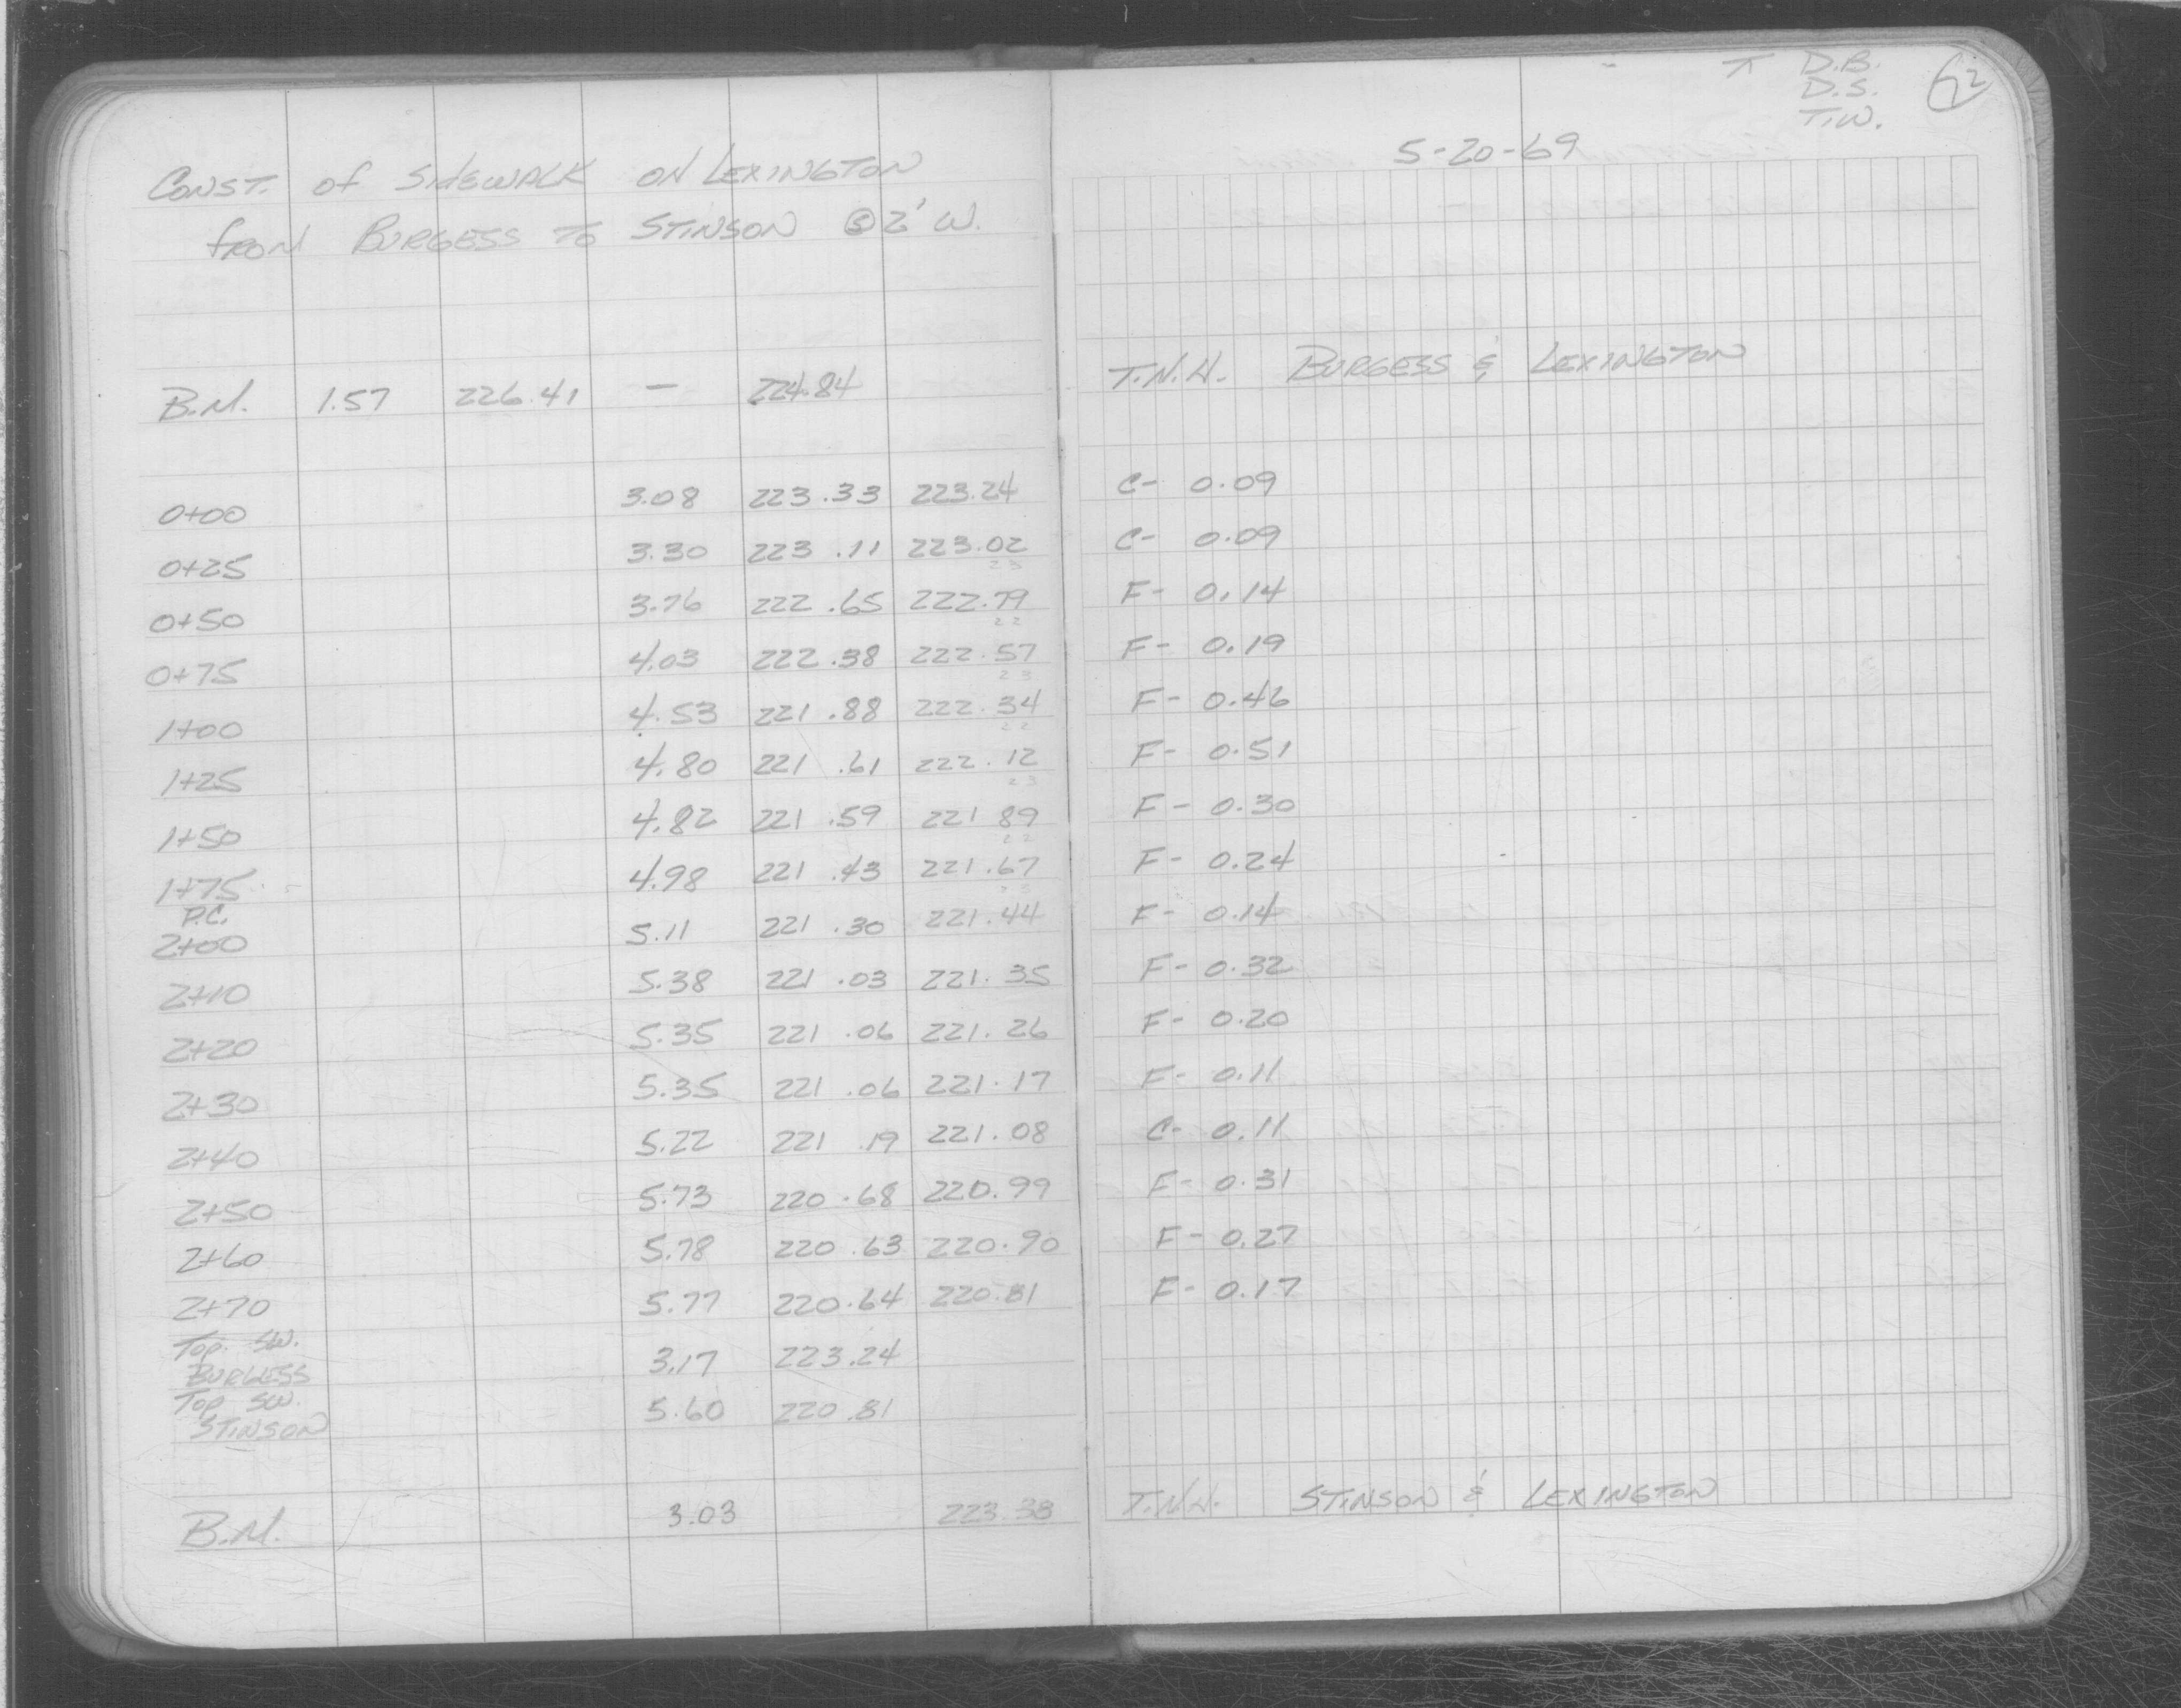 CONST. of SIDEWALK ON LEXINGTON
from BURGESS TO STINSON @ 2' W.
B.M. 1.57 226.41 — 224.84
0+00 3.08 223.33 223.24
0+25 3.30 223.11 223.02
23
0+50 3.76 222.65 222.79
22
0+75 4.03 222.38 222.57
23
1+00 4.53 221.88 222.34
22
1+25 4.80 221.61 222.12
23
1+50 4.82 221.59 221 89
22
1+75 4.98 221.43 221.67
23
P.C.
2+00 5.11 221.30 221.44
2+10 5.38 221.03 221.35
2+20 5.35 221.06 221.26
2+30 5.35 221.06 221.17
2+40 5.22 221.19 221.08
2+50 5.73 220.68 220.99
2+60 5.78 220.63 220.90
2+70 5.77 220.64 220.81
Top. SW.
BURGESS 3.17 223.24
Top SW.
STINSON 5.60 220.81
B.M. 3.03 223.38
⊼ D.B.
D.S.
T.W.
62
5-20-69
T.N.H. BURGESS & LEXINGTON
C- 0.09
C- 0.09
F- 0.14
F- 0.19
F- 0.46
F- 0.51
F- 0.30
F- 0.24
F- 0.14
F- 0.32
F- 0.20
F- 0.11
C- 0.11
F- 0.31
F- 0.27
F- 0.17
T.N.H. STINSON & LEXINGTON